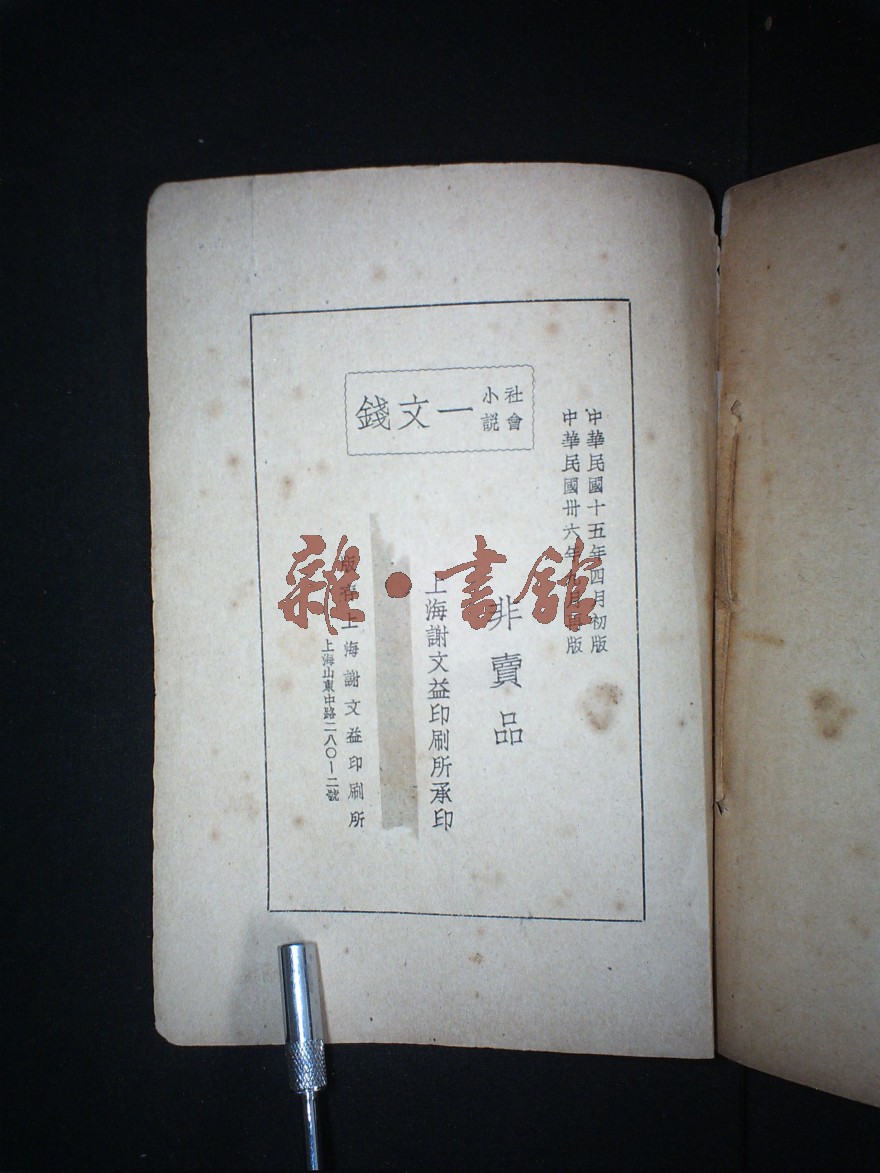 中華民國十五年四月初版
中華民國卅六年九月再版
社會
小説
一文錢
非賣品
上海謝文益印刷所承印
上海謝文益印刷所
上海山東中路二八〇—二號
雜·書館